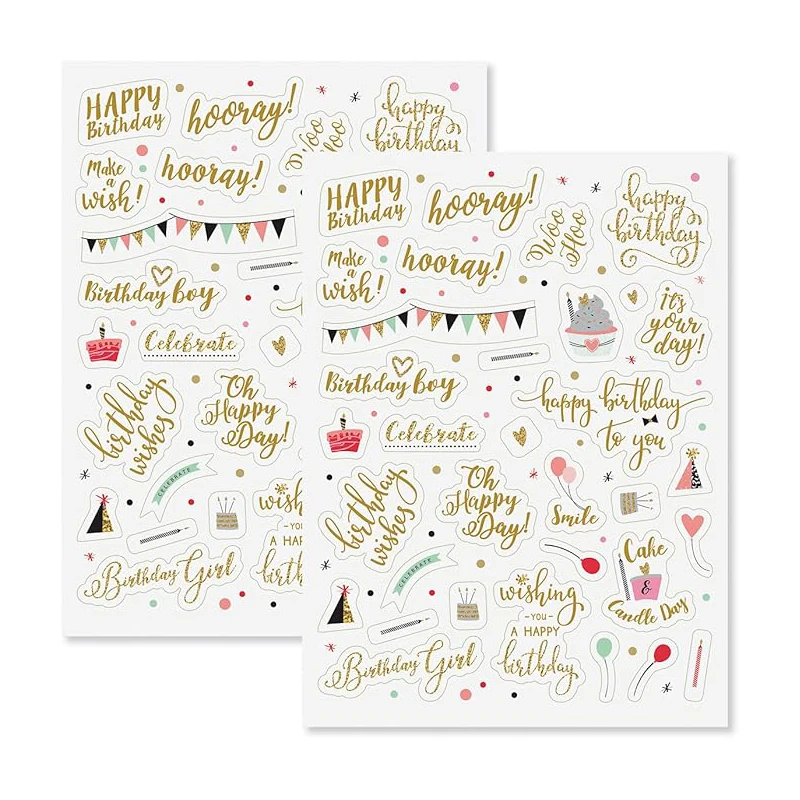 HAPPY
Birthday
hooray!
Woo
Hoo
happy
birthday
Make
a
wish!
hooray!
Birthday boy
Celebrate
birthday
wishes
Oh
Happy
Day!
CELEBRATE
wish
-YOU-
A HAPPY
birth
Birthday Girl
HAPPY
Birthday
hooray!
Woo
Hoo
happy
birthday
Make
a
wish!
hooray!
it's
your
day!
Birthday boy
happy birthday
to you
Celebrate
birthday
wishes
Oh
Happy
Day!
Smile
CELEBRATE
wishing
-YOU-
A HAPPY
birthday
Cake
&
Candle Day
Birthday Girl